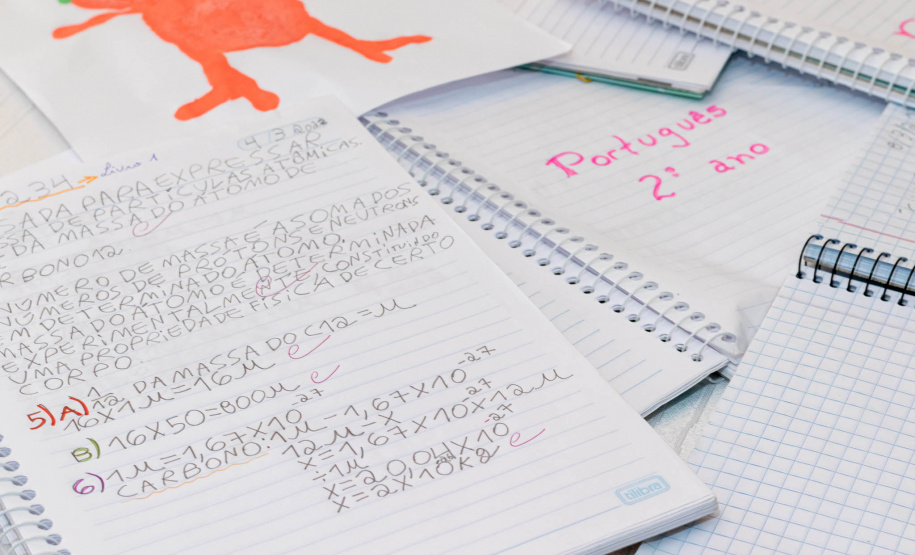 4 3 2022
234 → Livro 1
SADA PARA EXPRESSAR
SSA DE PARTÍCULAS ATÔMICAS.
DA MASSA DO ÁTOMO DE
RBONO 12
NÚMERO DE MASSA É A SOMA DOS
NÚMEROS DE PRÓTONS E NEUTRONS
M DETERMINADO ÁTOMO.
MASSA DO ÁTOMO E DETERMINADA
EXPERIMENTALMENTE CONSTITUINDO
UMA PROPRIEDADE FÍSICA DE CERTO
CORPO.
5) A) 1/12 DA MASSA DO C12 = u
16 X 1u = 16u
B) 16 X 50 = 800u
6) 1u = 1,67 X 10 -27
CARBONO: 1u - 1,67 X 10 -27
12u - x
x = 1,67 X 10 -27 X 12u
÷ 1u
x = 20,04 X 10 -27
x = 2 X 10 kg
tilibra
Português
2º ano